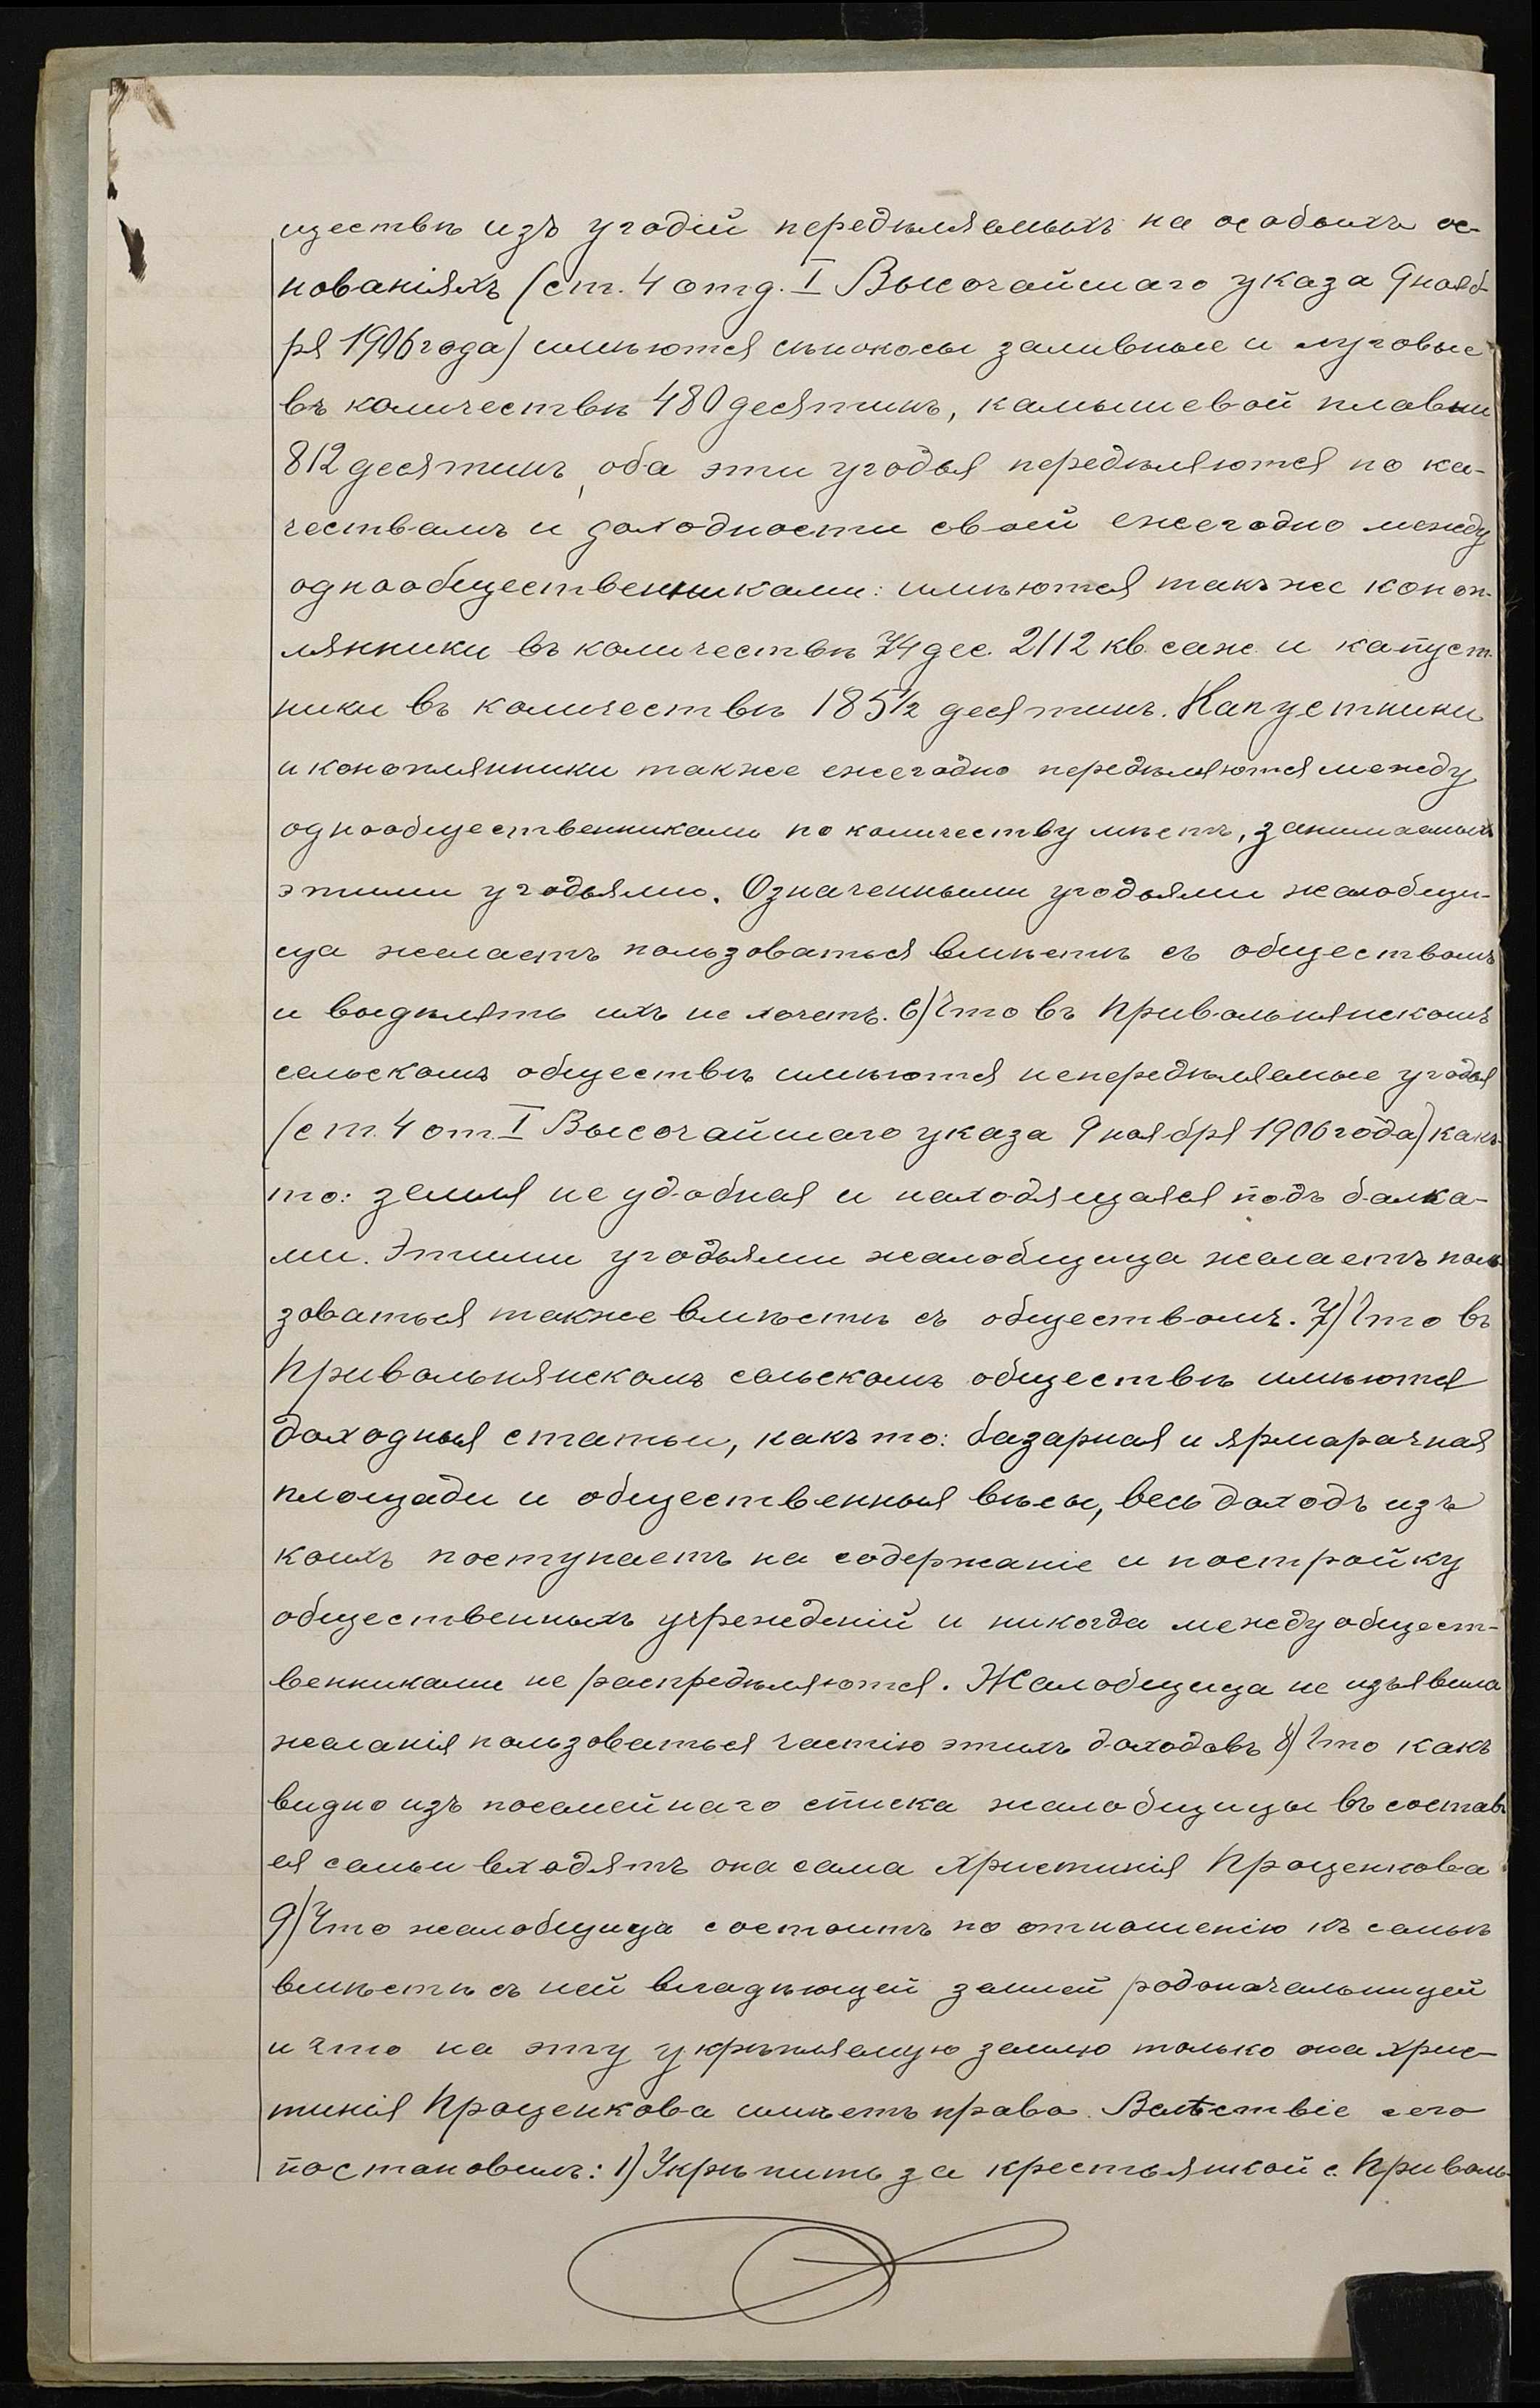 ществѣ изъ угодій передѣляемыхъ на особыхъ ос-
нованіяхъ (ст. 4 отд. I Высочайшаго указа 9 нояб-
ря 1906 года) имѣются сѣнокосы заливные и луговые
въ количествѣ 480 десятинъ, камышевой плавни
812 десятинъ, оба эти угодья передѣляются по ка-
чествамъ и доходности своей ежегодно между
однообщественниками: имѣются такъ же коноп-
лянники въ количествѣ 74 дес. 2112 кв. саж. и капуст-
ники въ количествѣ 185½ десятинъ. Капустники
и конопляники также ежегодно передѣляются между
однообщественниками по количеству мѣстъ, занимаемыхъ
этими угодьями. Означенными угодьями жалобщи-
ца желаетъ пользоваться вмѣстѣ съ обществомъ
и выдѣлять ихъ не хочетъ. 6) Что въ Привольнянскомъ
сельскомъ обществѣ имѣются непередѣляемые угодья
(ст. 4 от. I Высочайшаго указа 9 ноября 1906 года) какъ-
то: земля не удобная и находящаяся подъ балка-
ми. Этими угодьями жалобщица желаетъ поль-
зоваться также вмѣстѣ съ обществомъ. 7) Что въ
Привольнянскомъ сельскомъ обществѣ имѣются
доходныя статьи, какъ то: базарная и ярмарачная
площади и общественныя вѣсы, весь доходъ изъ
коихъ поступаетъ на содержаніе и постройку
общественныхъ учрежденій и никогда между общест-
венниками не распредѣляются. Жалобщица не изъявила
желанія пользоваться частію этихъ доходовъ 8) Что какъ
видно изъ посемейнаго списка жалобщицы въ составъ
ея семьи входятъ она сама Христинія Проценкова
9) Что жалобщица состоитъ по отношенію къ семьѣ
вмѣстѣ съ ней владѣющей землей родоначальницей
и что на эту укрѣпляемую землю только она Хрис-
тинія Проценкова имѣетъ право. Велѣствіе сего
постановилъ: 1) Укрѣпить за крестьянкой с. Приволь-